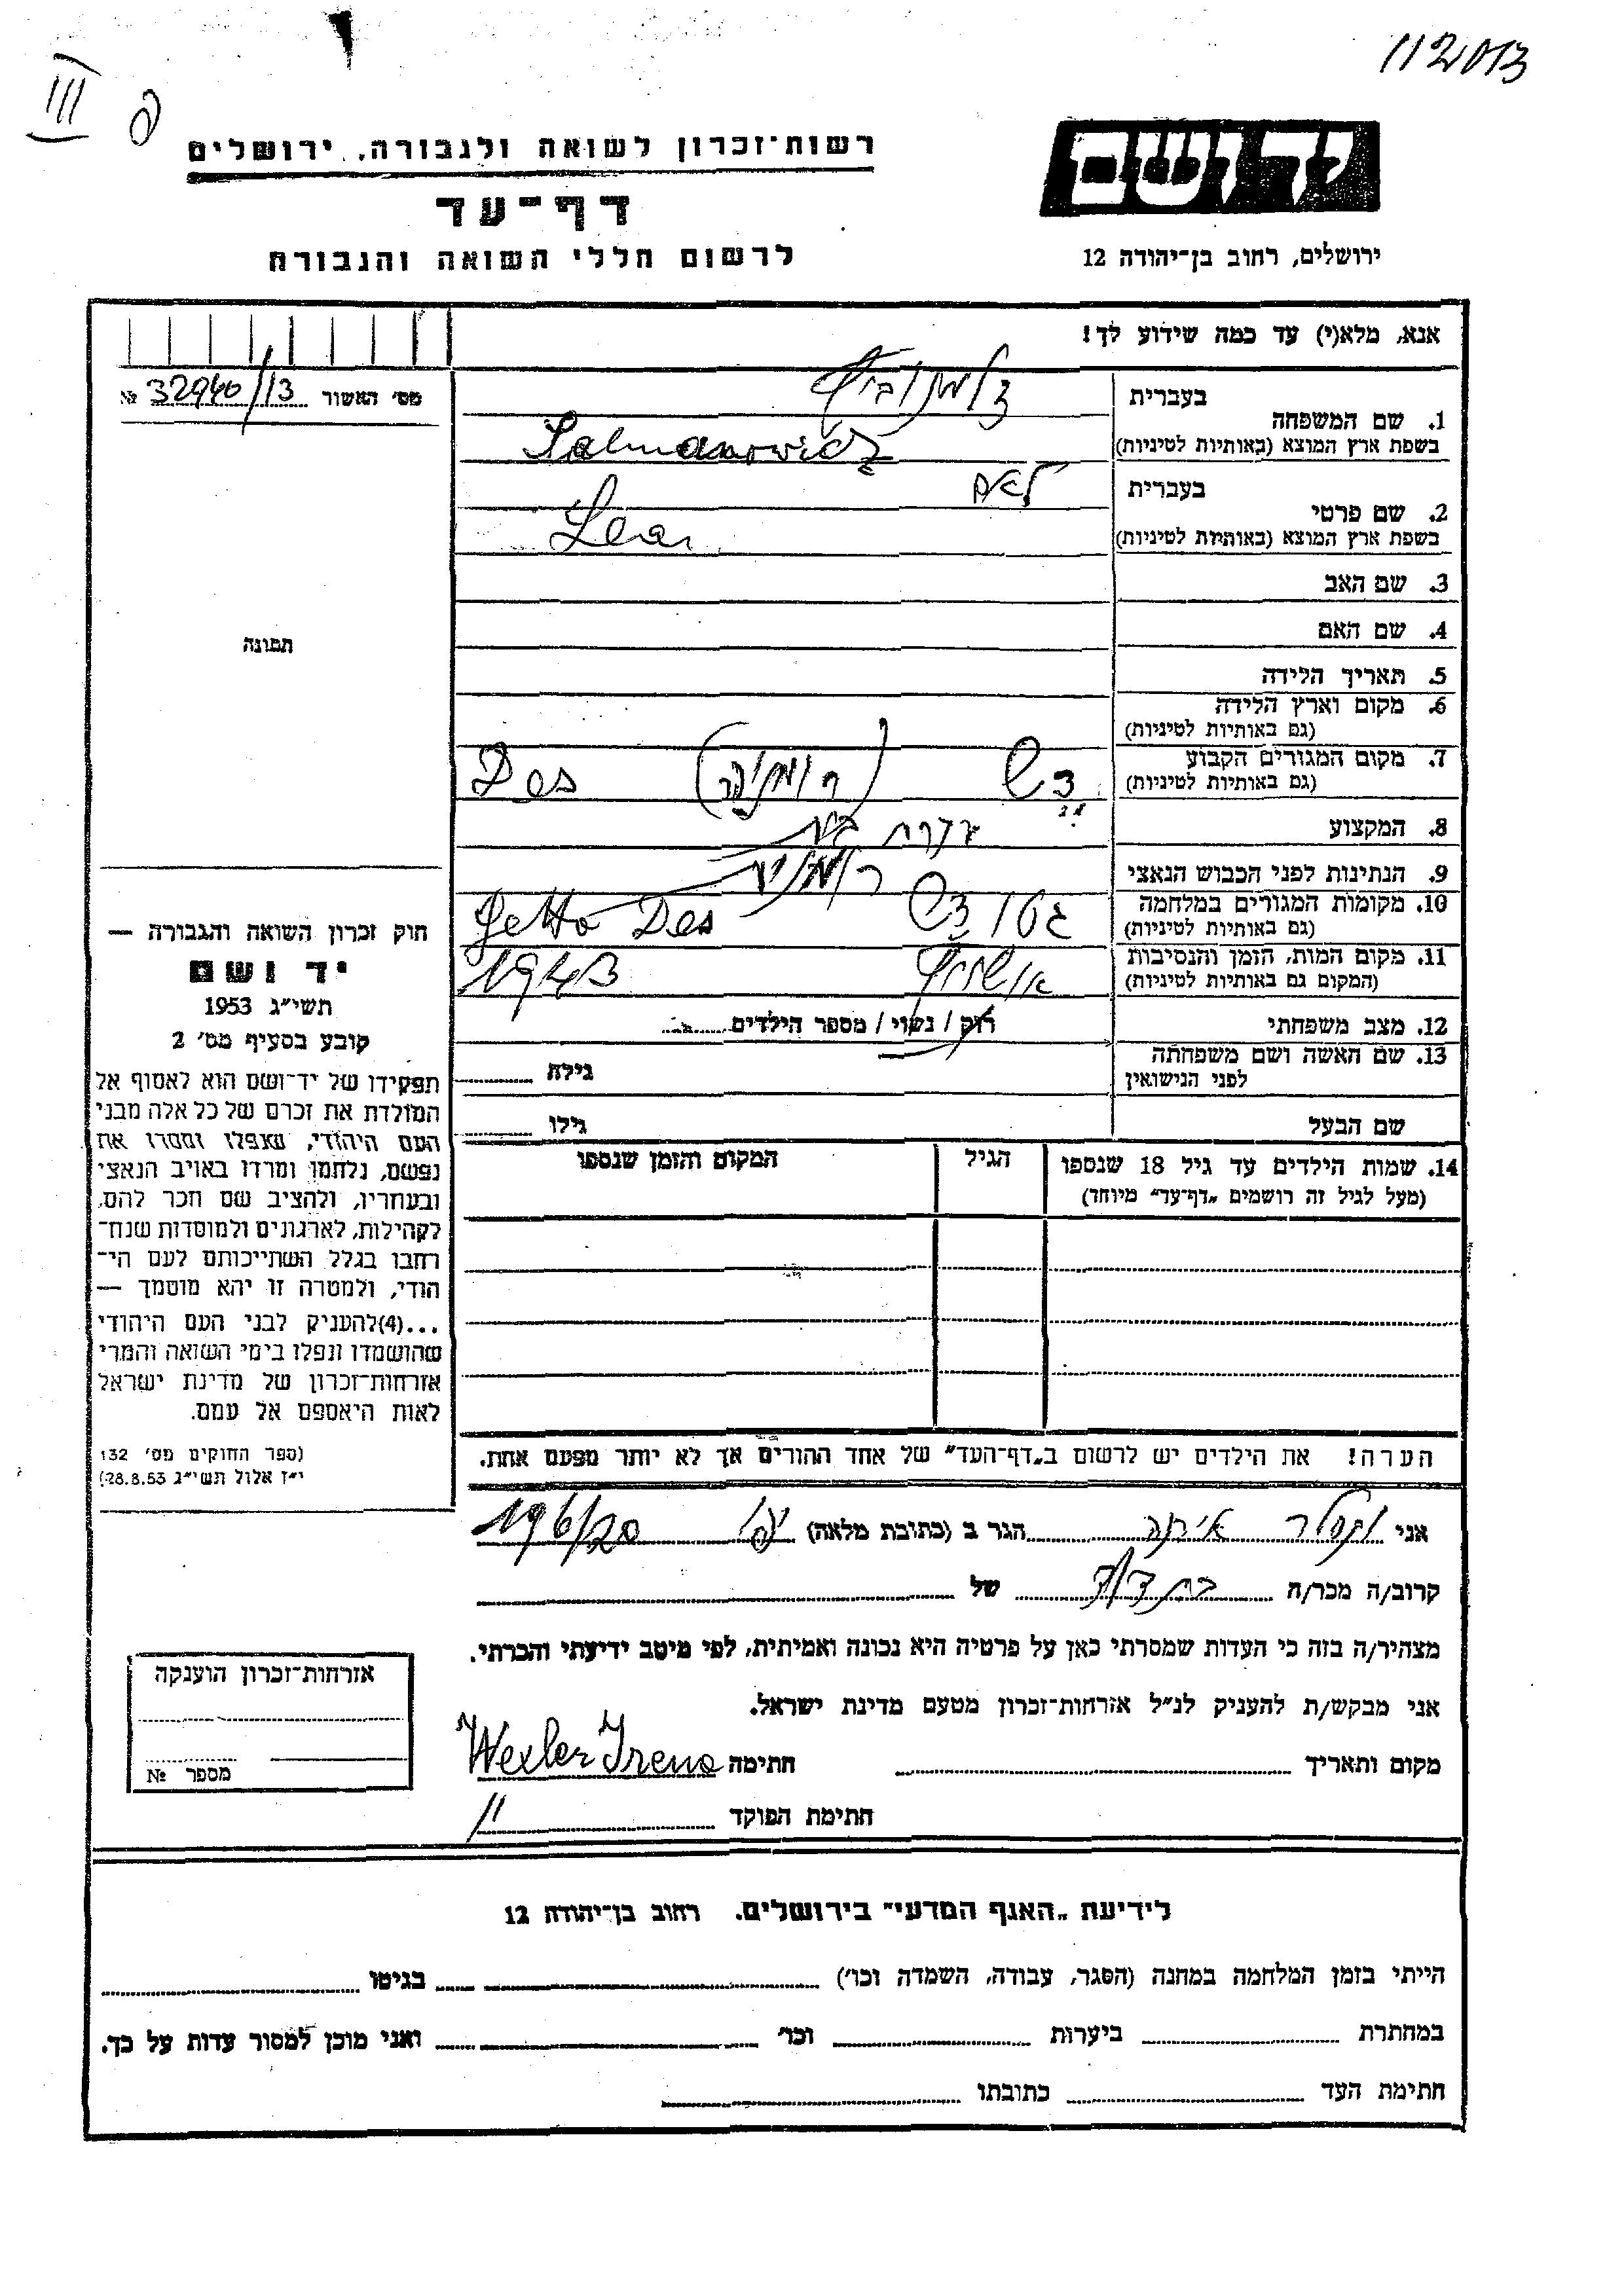 112013
III
רשות־זכרון לשואה ולגבורה, ירושלים
יד ושם
דף־עד
לרשום חללי השואה והגבורה
ירושלים, רחוב בן־יהודה 12
אנא, מלא(י) עד כמה שידוע לך!
מס׳ האשור 32940/13 №
1. שם המשפחה
בעברית
זלמנוביץ
בשפת ארץ המוצא (באותיות לטיניות)
Salmanowicz
2. שם פרטי
בעברית
לאה
בשפת ארץ המוצא (באותיות לטיניות)
Lea
3. שם האב
4. שם האם
5. תאריך הלידה
6. מקום וארץ הלידה
(גם באותיות לטיניות)
7. מקום המגורים הקבוע
(גם באותיות לטיניות)
דש (רומניה) Des
8. המקצוע
עקרת בית
9. הנתינות לפני הכבוש הנאצי
רומניה
10. מקומות המגורים במלחמה
(גם באותיות לטיניות)
גטו דש Getto Des
11. מקום המות, הזמן והנסיבות
(המקום גם באותיות לטיניות)
אושויץ 1943
12. מצב משפחתי
רוק / נשוי / מספר הילדים
13. שם האשה ושם משפחתה
לפני הנישואין
גילה
שם הבעל
גילו
14. שמות הילדים עד גיל 18 שנספו
(מעל לגיל זה רושמים „דף־עד״ מיוחד)
הגיל
המקום והזמן שנספו
הערה! את הילדים יש לרשום ב„דף־העד״ של אחד ההורים אך לא יותר מפעם אחת.
תמונה
חוק זכרון השואה והגבורה —
יד ושם
תשי״ג 1953
קובע בסעיף מס׳ 2
תפקידו של יד־ושם הוא לאסוף אל
המולדת את זכרם של כל אלה מבני
העם היהודי, שנפלו ומסרו את
נפשם, נלחמו ומרדו באויב הנאצי
ובעוזריו, ולהציב שם וזכר להם,
לקהילות, לארגונים ולמוסדות שנח־
רחבו בגלל השתייכותם לעם הי־
הודי, ולמטרה זו יהא מוסמך —
...(4)להעניק לבני העם היהודי
שהושמדו ונפלו בימי השואה והמרי
אזרחות־זכרון של מדינת ישראל
לאות היאספם אל עמם.
(ספר החוקים מס׳ 132
י״ז אלול תשי״ג 28.8.53)
אני וקסלר אירנה הגר ב (כתובת מלאה) יפו 196/20
קרוב/ה מכר/ה בת דוד של
מצהיר/ה בזה כי העדות שמסרתי כאן על פרטיה היא נכונה ואמיתית, לפי מיטב ידיעתי והכרתי.
אני מבקש/ת להעניק לנ״ל אזרחות־זכרון מטעם מדינת ישראל.
מקום ותאריך חתימה Wexler Irena
חתימת הפוקד
אזרחות־זכרון הוענקה
מספר №
לידיעת „האגף המדעי״ בירושלים. רחוב בן־יהודה 12
הייתי בזמן המלחמה במחנה (הסגר, עבודה, השמדה וכו׳) בגיטו
במחתרת ביערות וכו׳ ואני מוכן למסור עדות על כך.
חתימת העד כתובתו